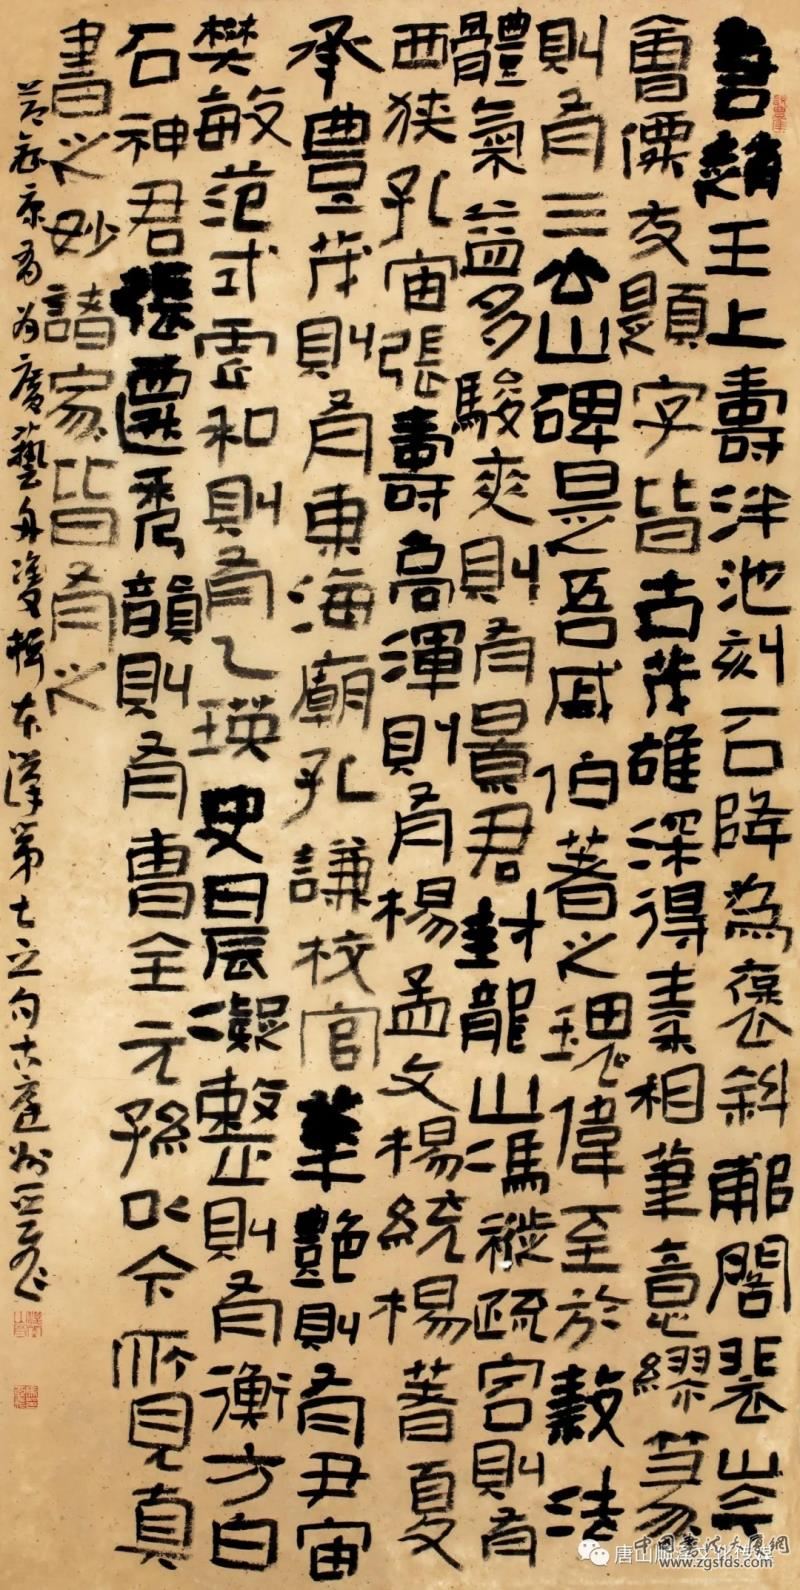 書趙王上壽泮池刻石降為褒斜郙閣裴岑
會僊友題字皆古茂雄深得秦相筆意繆篆
則有三公山碑是吾戚伯著之瑰偉至於隸法
體氣益多駿爽則有景君封龍山馮緄疏宕則有
西狹孔宙張壽高渾則有楊孟文楊統楊著夏
承豐茂則有東海廟孔謙校官華艷則有尹宙
樊敏范式虛和則有乙瑛史晨凝整則有衡方白
石神君張遷秀韻則有曹全元孫以今所見真
書之妙諸家皆有之
節錄康有為廣藝舟雙楫本漢第七之句
唐山順澤文化传媒
中国書法大展網
www.zgsfds.com